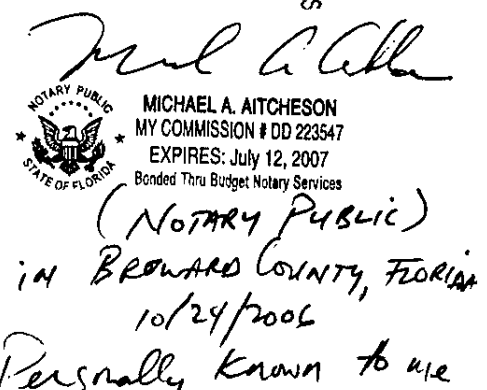 NOTARY PUBLIC
STATE OF FLORIDA
MICHAEL A. AITCHESON
MY COMMISSION # DD 223547
EXPIRES: July 12, 2007
Bonded Thru Budget Notary Services
(NOTARY PUBLIC)
in BROWARD COUNTY, FLORIDA
10/24/2006
Personally Known to me